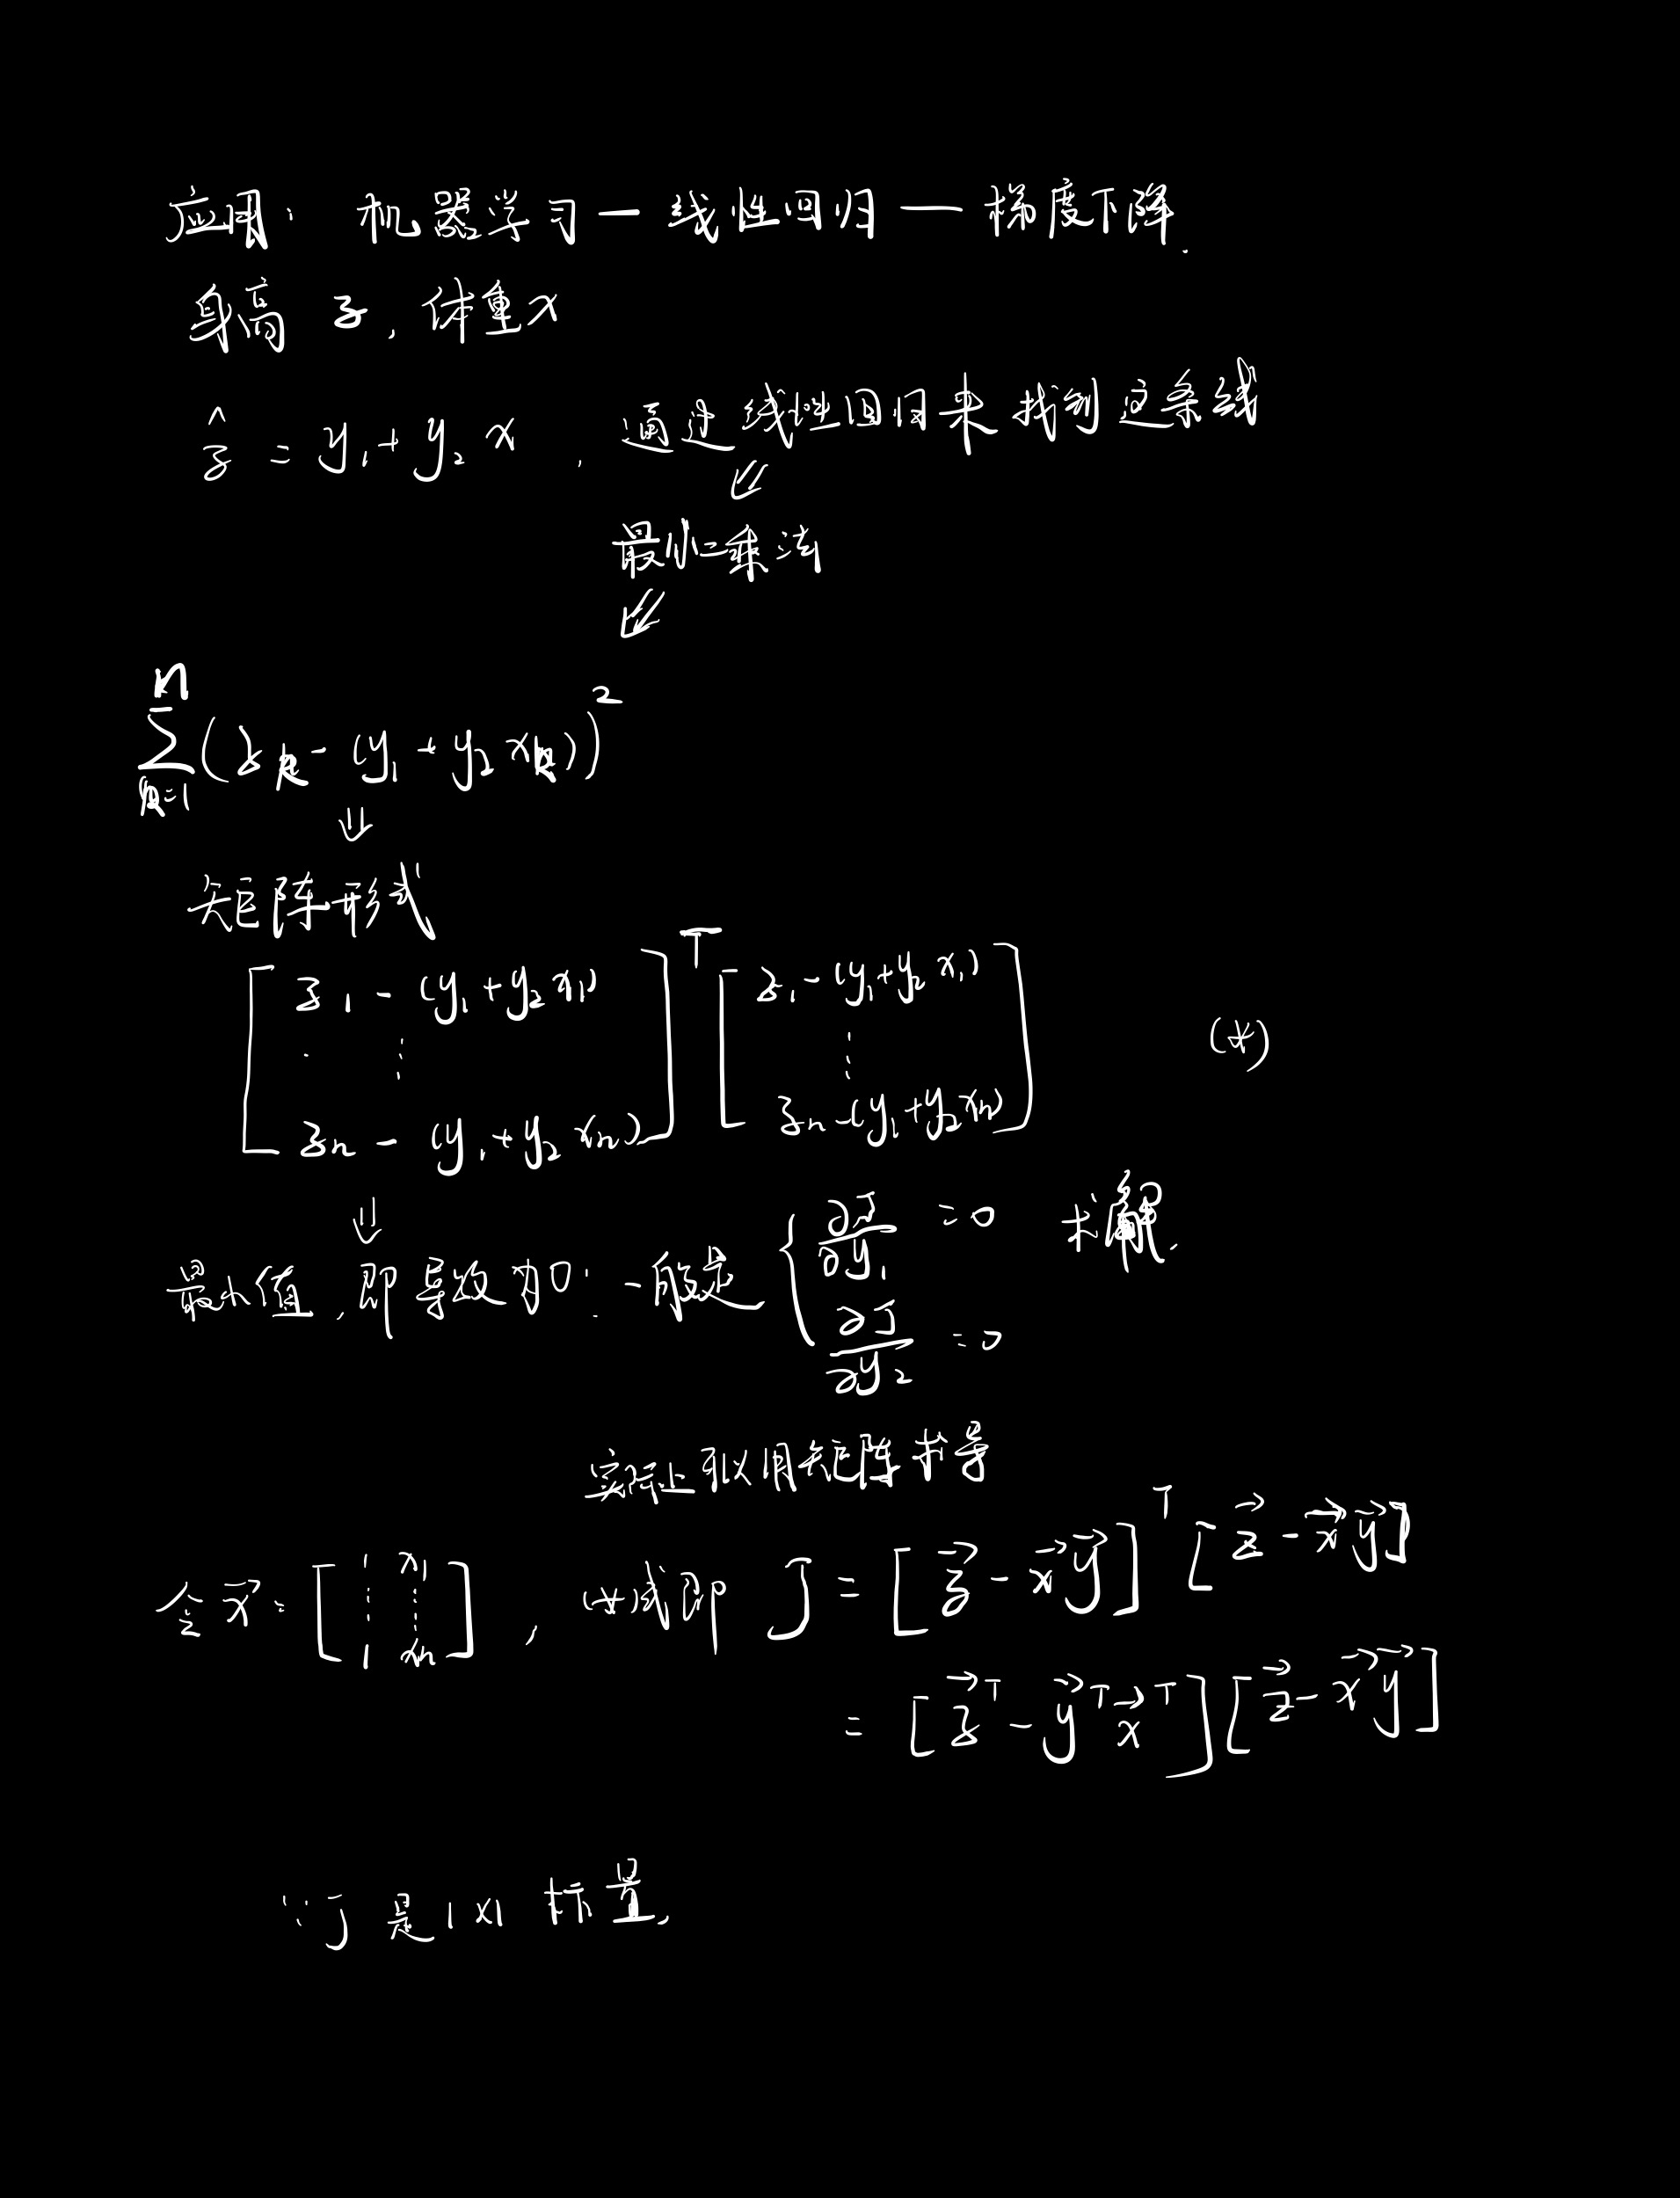 应用: 机器学习—线性回归—梯度下降.
身高 z, 体重 x
ẑ = y₁ + y₂ x , 通过线性回归来找到这条线
⇓
最小二乘法
⇓
∑ₖ₌₁ⁿ (zₖ - (y₁ + y₂ xₖ))²
⇓
矩阵形式
[z₁ - (y₁ + y₂ x₁) ⋮ zₙ - (y₁ + y₂ xₙ)]ᵀ [z₁ - (y₁ + y₂ x₁) ⋮ zₙ - (y₁ + y₂ xₙ)] (*)
⇓
最小值, 即导数为0: 一般是 { ∂J/∂y₁ = 0 ∂J/∂y₂ = 0 求解.
实际上可以用矩阵求导
令 x⃗ = [1 x₁ ⋮ ⋮ 1 xₙ] , (*)式即 J = [z⃗ - x⃗y⃗]ᵀ [z⃗ - x⃗y⃗]
= [z⃗ᵀ - y⃗ᵀx⃗ᵀ] [z⃗ - x⃗y⃗]
∵ J 是 1×1 标量,